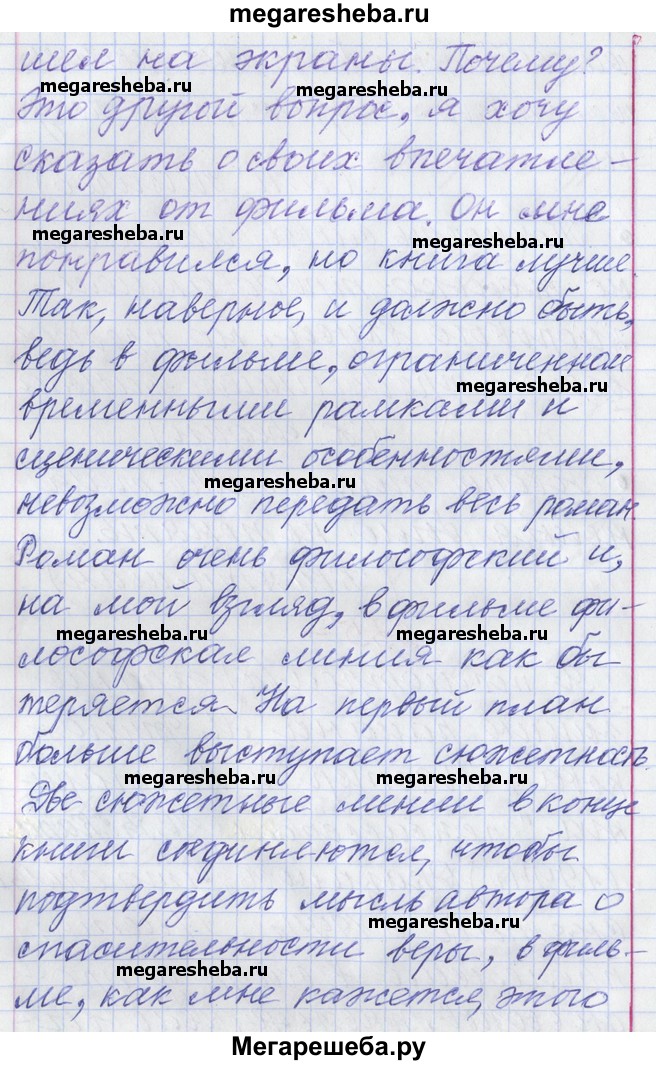 megaresheba.ru
шел на экраны. Почему?
megaresheba.ru megaresheba.ru
Это другой вопрос, я хочу
сказать о своих впечатле-
ниях от фильма. Он мне
megaresheba.ru megaresheba.ru
понравился, но книга лучше.
Так, наверное, и должно быть,
ведь в фильме, ограниченном
megaresheba.ru
временными рамками и
сценическими особенностями,
megaresheba.ru
невозможно передать весь роман.
Роман очень философский и,
на мой взгляд, в фильме фи-
megaresheba.ru megaresheba.ru
лософская линия как бы
теряется. На первый план
больше выступает сюжетность.
megaresheba.ru megaresheba.ru
Две сюжетные линии в конце
книги соединяются, чтобы
подтвердить мысль автора о
megaresheba.ru
спасительности веры, в филь-
megaresheba.ru
ме, как мне кажется, этого
Мегарешеба.ру